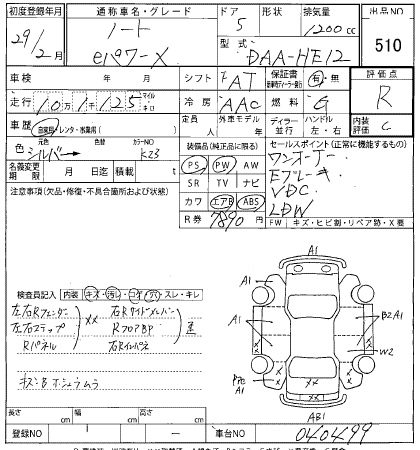 初度登録年月 通称車名・グレード ドア 形状 排気量 出品NO
29/2月 ノート eパワーX 5 1200cc 510
型式 DAA-HE12
車検 シフト AT 保証書 有・無 評価点 R
走行 10万1千125 マイル キロ 冷房 AAC 燃料 G
車歴 自家用・レンタ・事業用 定員 人 外車モデル 年 ディーラー 並行 ハンドル 左・右 内装評価 C
色 元色 シルバー 色替 カラーNO K23
装備品(純正品に限る) セールスポイント(正常に機能するもの)
名義変更期限 月 日迄 積載 t PS PW AW ワンオーナー
注意事項(欠品・修復・不具合箇所および状態) SR TV ナビ Eブレーキ
カワ エアB ABS VDC
R券 7890円 LDW
FW キズ・ヒビ割・リペア跡・X要
A1
検査員記入 内装 キズ・汚レ・コゲ・穴・スレ・キレ
A1 A1
左右Rフェンダー XX 右Rサイドメンバー A1 B2A1
左右ステップ RフロアBP 歪
Rパネル 右Rインパネ W2
A1
XX
AB1
長さ cm 幅 cm 高さ cm
登録NO ― 車台NO 040499